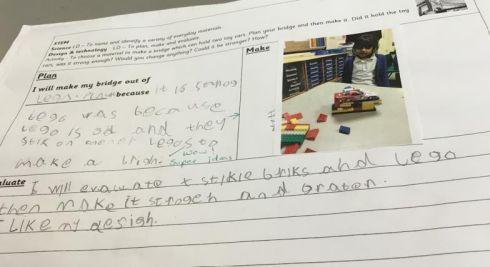 STEM
Science LO – To name and identify a variety of everyday materials
Design & technology LO – To plan, make and evaluate
Activity - To choose a material to make a bridge which can hold two toy cars. Plan your bridge and then make it. Did it hold the toy
cars, was it strong enough? Would you change anything? Could it be stronger? How?
Plan
Make
I will make my bridge out of
because it is strong
Lego was because
Lego is od and they
stik on Legos to
make a brigh.
Wow!
Super idea
aluate I will evaluate stikie briks and Lego
then make it strogeh and
I Like my desigh.